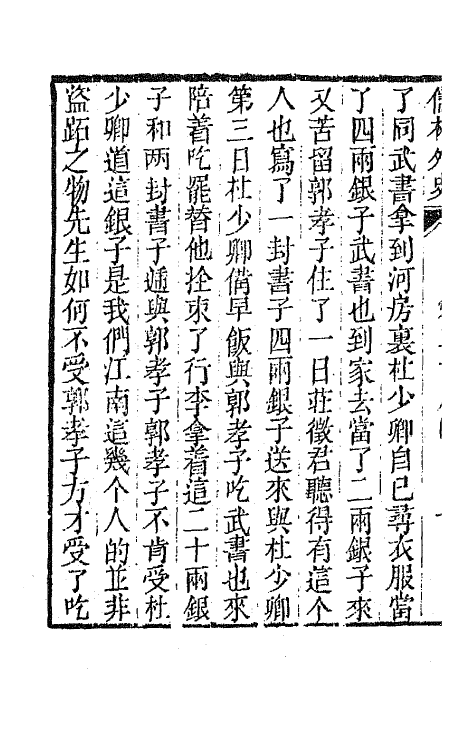 儒林外史
了同武書拿到河房裏杜少卿自己尋衣服當
了四兩銀子武書也到家去當了二兩銀子來
又苦留郭孝子住了一日莊徵君聽得有這个
人也寫了一封書子四兩銀子送來與杜少卿
第三日杜少卿備早飯與郭孝子吃武書也來
陪着吃罷替他拴束了行李拿着這二十兩銀
子和两封書子遞與郭孝子郭孝子不肯受杜
少卿道這銀子是我們江南這幾个人的並非
盜跖之物先生如何不受郭孝子方才受了吃